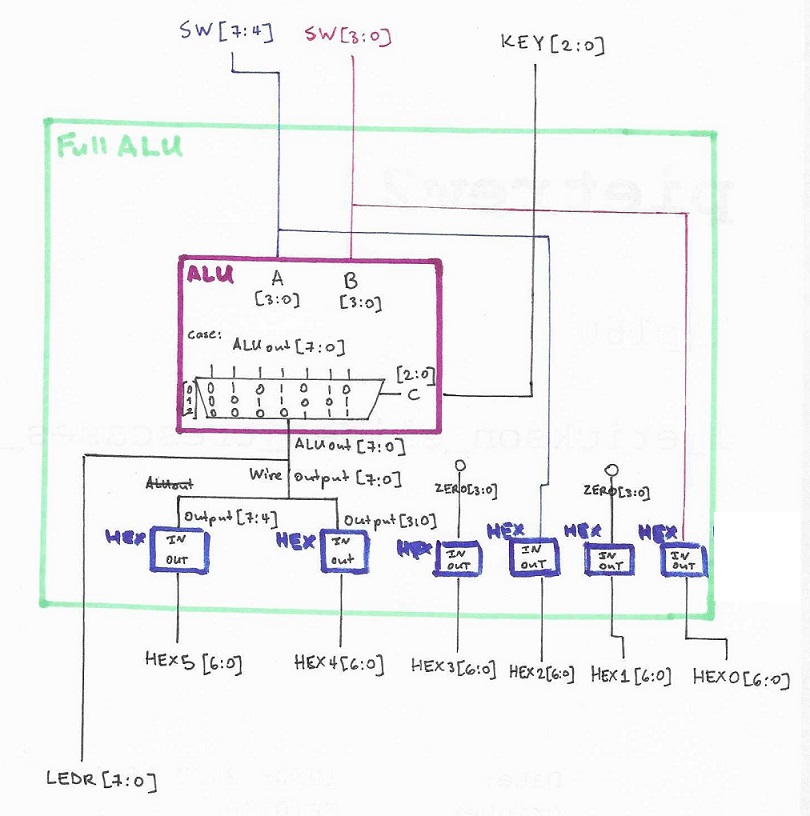 SW[7:4] SW[3:0] KEY[2:0]
Full ALU
ALU A B
[3:0] [3:0]
case:
ALUout[7:0]
[2:0]
C
0 0 1 0 1 0 1 1
1 0 0 1 1 0 0 1
2 0 0 0 0 1 1 1
ALUout[7:0]
Wire Output[7:0]
ALUout
Output[7:4] Output[3:0]
ZERO[3:0] ZERO[3:0]
HEX HEX HEX HEX HEX HEX
IN IN IN IN IN IN
OUT Out OUT OUT OUT OUT
HEX5[6:0] HEX4[6:0] HEX3[6:0] HEX2[6:0] HEX1[6:0] HEX0[6:0]
LEDR[7:0]